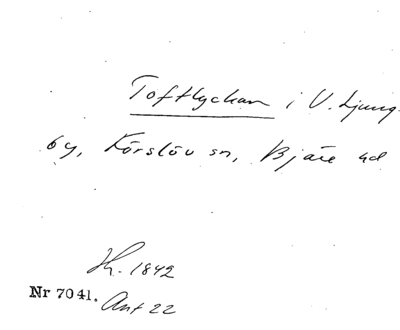 Toftlyckan i V. Ljung-
by, Förslöv sn, Bjäre hd
Jh. 1842
Nr 7041. Ant 22